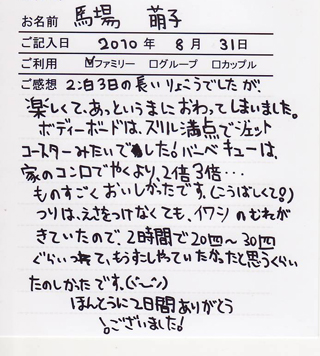 お名前 馬場 萌子
ご記入日 2010 年 8 月 31日
ご利用 ☑ファミリー □グループ □カップル
ご感想 2泊3日の長いりょこうでしたが、
楽しくて、あっというまにおわってしまいました。
ボディーボードは、スリル満点でジェット
コースターみたいでした!バーベキューは、
家のコンロでやくより、2倍3倍…
ものすごくおいしかったです。(こうばしくて!)
つりは、えさをつけなくても、イワシのむれが
きていたので、2時間で20匹~30匹
ぐらいつれて、もうすこしやていたかったと思うくらい
たのしかったです。(^-^)
ほんとうに2日間ありがとう
!ございました!